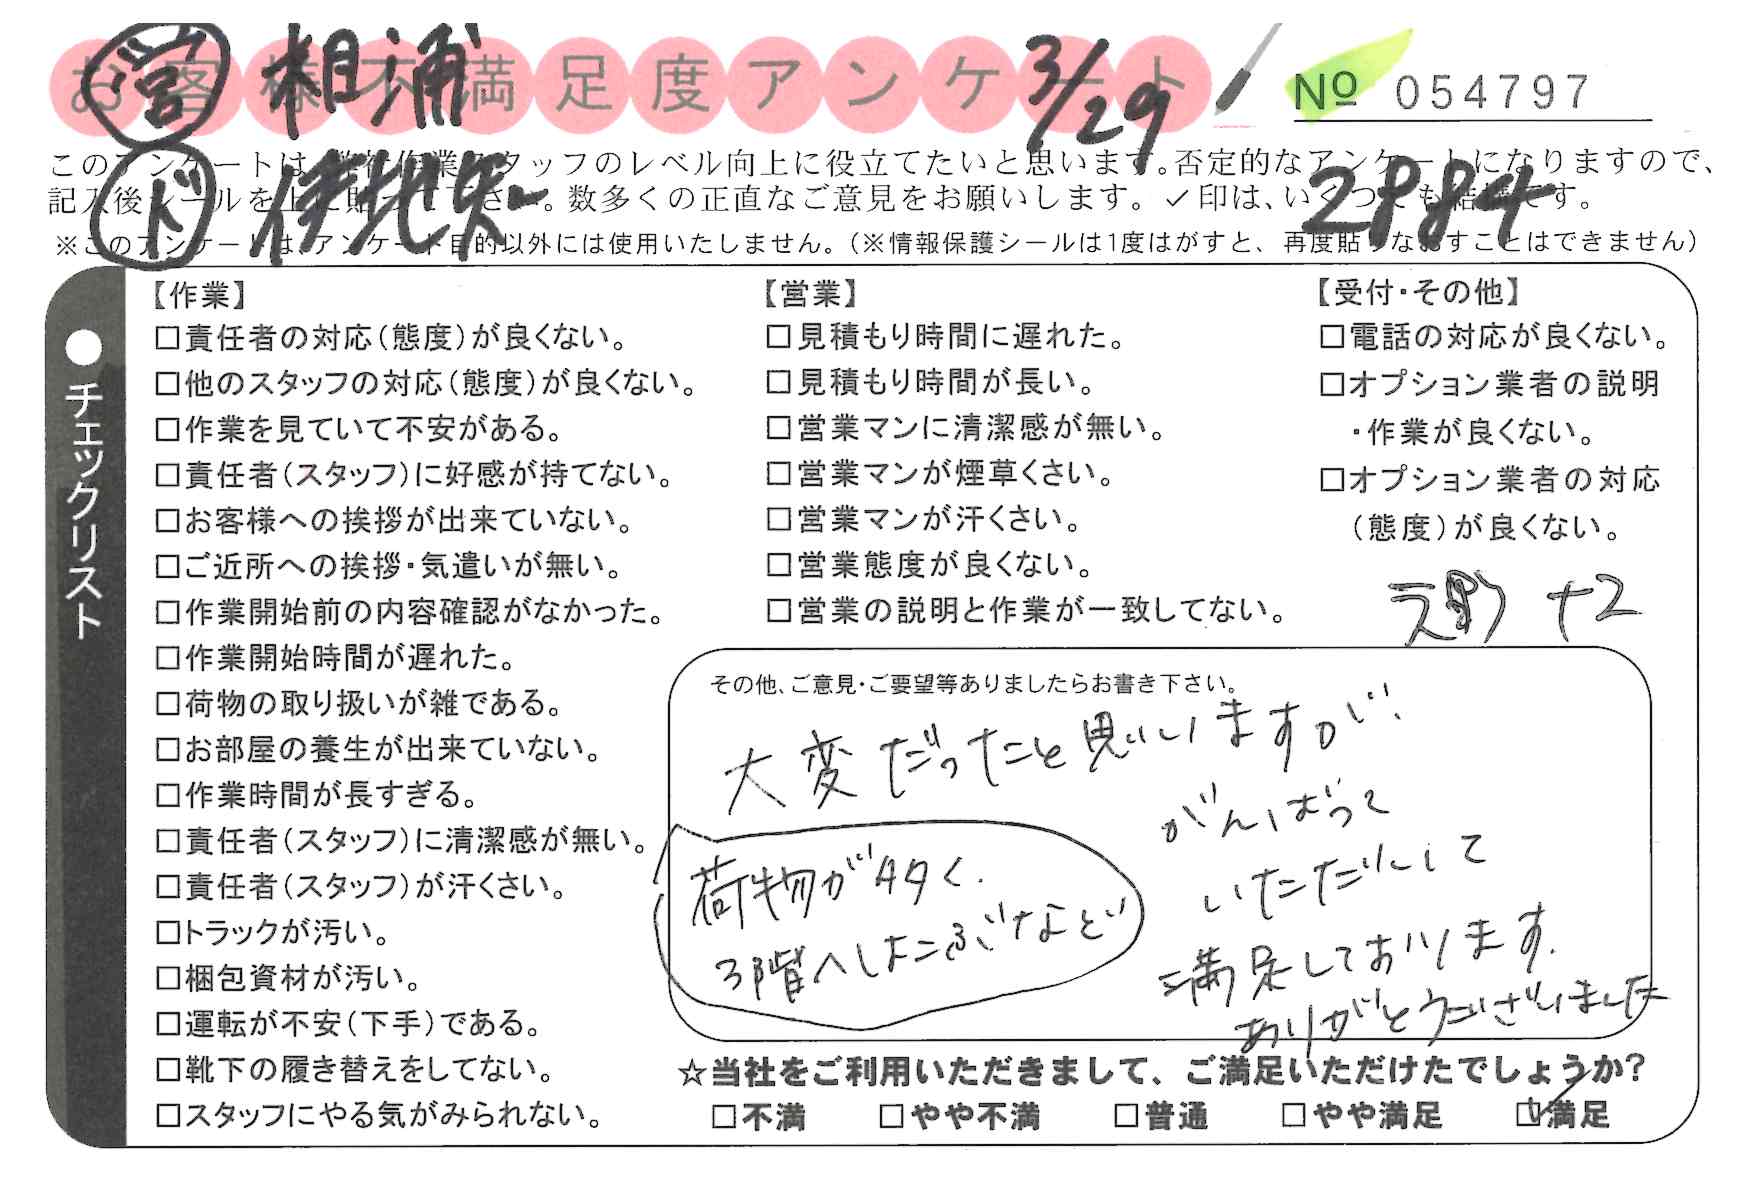 お客様不満足度アンケート
㊂ 相浦
3/29
№ 054797
このアンケートは、弊社作業スタッフのレベル向上に役立てたいと思います。否定的なアンケートになりますので、
記入後シールを上に貼って下さい。数多くの正直なご意見をお願いします。✓印は、いくつでも結構です。
ド 伊北
2884
※このアンケートは、アンケート目的以外には使用いたしません。(※情報保護シールは1度はがすと、再度貼りなおすことはできません)
●チェックリスト
【作業】
□責任者の対応(態度)が良くない。
□他のスタッフの対応(態度)が良くない。
□作業を見ていて不安がある。
□責任者(スタッフ)に好感が持てない。
□お客様への挨拶が出来ていない。
□ご近所への挨拶・気遣いが無い。
□作業開始前の内容確認がなかった。
□作業開始時間が遅れた。
□荷物の取り扱いが雑である。
□お部屋の養生が出来ていない。
□作業時間が長すぎる。
□責任者(スタッフ)に清潔感が無い。
□責任者(スタッフ)が汗くさい。
□トラックが汚い。
□梱包資材が汚い。
□運転が不安(下手)である。
□靴下の履き替えをしてない。
□スタッフにやる気がみられない。
【営業】
□見積もり時間に遅れた。
□見積もり時間が長い。
□営業マンに清潔感が無い。
□営業マンが煙草くさい。
□営業マンが汗くさい。
□営業態度が良くない。
□営業の説明と作業が一致してない。
【受付・その他】
□電話の対応が良くない。
□オプション業者の説明
・作業が良くない。
□オプション業者の対応
(態度)が良くない。
+2
その他、ご意見・ご要望等ありましたらお書き下さい。
大変だったこと思いいますが、
がんばって
いただいして
満足しております。
ありがとうございました
荷物が多く、
3階へはこぶなど
☆当社をご利用いただきまして、ご満足いただけたでしょうか?
□不満 □やや不満 □普通 □やや満足 ☑満足